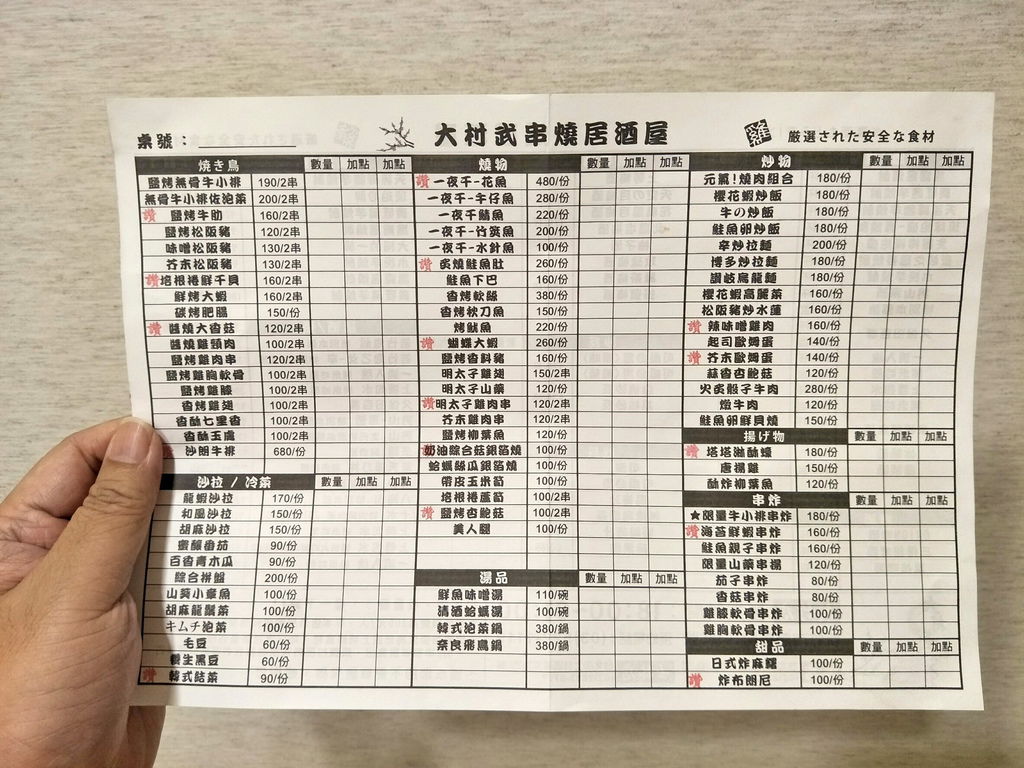 桌號：
大村武串燒居酒屋
雞 厳選された安全な食材
焼き鳥 數量 加點 加點
鹽烤無骨牛小排 190/2串
無骨牛小排佐泡菜 200/2串
讚 鹽烤牛肋 160/2串
鹽烤松阪豬 120/2串
味噌松阪豬 130/2串
芥末松阪豬 130/2串
讚 培根捲鮮干貝 160/2串
鮮烤大蝦 160/2串
碳烤肥腸 150/份
讚 醬燒大香菇 120/2串
醬燒雞頸肉 100/2串
鹽烤雞肉串 120/2串
鹽烤雞胸軟骨 100/2串
鹽烤雞腱 100/2串
香烤雞翅 100/2串
香酥七里香 100/2串
香酥玉膚 100/2串
沙朗牛排 680/份
沙拉 / 冷菜 數量 加點 加點
龍蝦沙拉 170/份
和風沙拉 150/份
胡麻沙拉 150/份
蜜釀番茄 90/份
百香青木瓜 90/份
綜合拼盤 200/份
山葵小章魚 100/份
胡麻龍鬚菜 100/份
キムチ泡菜 100/份
毛豆 60/份
養生黑豆 60/份
讚 韓式話菜 90/份
燒物 數量 加點 加點
讚 一夜干-花魚 480/份
一夜干-牛仔魚 280/份
一夜干鯖魚 220/份
一夜干-竹筴魚 200/份
一夜干-水針魚 100/份
讚 炙燒鮭魚肚 260/份
鮭魚下巴 160/份
香烤軟絲 380/份
香烤秋刀魚 150/份
烤魷魚 220/份
讚 蝴蝶大蝦 260/份
鹽烤香料豬 160/份
明太子雞翅 150/2串
明太子山藥 120/份
讚 明太子雞肉串 120/2串
芥末雞肉串 120/2串
鹽烤柳葉魚 120/份
奶油綜合菇銀箔燒 100/份
蛤蠣絲瓜銀箔燒 100/份
帶皮玉米筍 100/份
培根捲蘆筍 100/2串
讚 鹽烤杏鮑菇 100/2串
美人腿 100/份
湯品 數量 加點 加點
鮮魚味噌湯 110/碗
清酒蛤蠣湯 100/碗
韓式泡菜鍋 380/鍋
奈良飛鳥鍋 380/鍋
炒物 數量 加點 加點
元氣!燒肉組合 180/份
櫻花蝦炒飯 180/份
牛の炒飯 180/份
鮭魚卵炒飯 180/份
辛炒拉麵 200/份
博多炒拉麵 180/份
讚岐烏龍麵 180/份
櫻花蝦高麗菜 160/份
松阪豬炒水蓮 160/份
讚 辣味噌雞肉 160/份
起司歐姆蛋 140/份
讚 芥末歐姆蛋 140/份
蒜香杏鮑菇 120/份
火炙骰子牛肉 280/份
燉牛肉 120/份
鮭魚卵鮮貝燒 150/份
揚げ物 數量 加點 加點
讚 塔塔淋酥蠔 180/份
唐揚雞 150/份
酥炸柳葉魚 120/份
串炸 數量 加點 加點
★限量牛小排串炸 180/份
讚 海苔鮮蝦串炸 160/份
鮭魚親子串炸 160/份
限量山藥串揚 120/份
茄子串炸 80/份
香菇串炸 80/份
雞腱軟骨串炸 100/份
雞胸軟骨串炸 100/份
甜品 數量 加點 加點
日式炸麻糬 100/份
讚 炸布朗尼 100/份